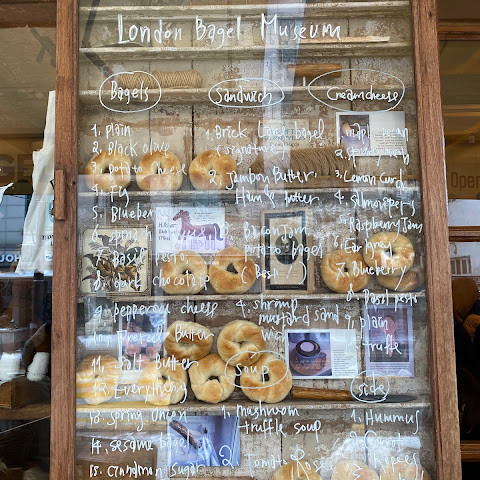 London Bagel Museum
Bagels
1. plain
2. Black olive
3. Potato cheese
4. Fig
5. Blueberry
6. spinach
7. Basil pesto
8. Dark chocolate
9. pepperoni cheese
10. pretzel Butter
11. salt Butter
12. Everything
13. spring onion
14. sesame
15. cinnamon sugar
Sandwich
1. Brick Lane bagel
(signature)
2. Jambon Butter
Ham & butter
3. Bacon Jam
potato bagel
(Best!)
4. shrimp
mustard sand
wich
Soup
1. mushroom
truffle soup
2. Tomato
Creamcheese
1. maple pecan
2.
3. Lemon Curd
4. Salmon
5. Raspberry Jam
6. Earl Grey
7. Blueberry
8. Basil pesto
9. plain
truffle
side
1. Hummus
2.
Open